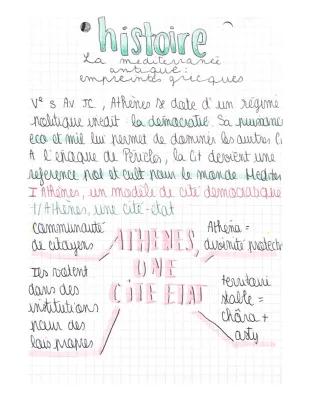 histoire
La mediterranée
antique :
empreintes grecques
Ve s Av JC, Athènes se dote d'un régime
politique inédit la démocratie. Sa puissance
eco et mil lui permet de dominer les autres Ci
A l'époque de Périclès, la Cit devient une
reference pol et cult pour le monde Mediter
I Athènes, un modèle de cité démocratique
1/ Athènes, une cité-état
communauté
de citoyens
Athéna =
divinité protectr
ATHÈNES,
UNE
CITÉ ETAT
Ils votent
dans des
institutions
pour des
lois propres
territoire
stable =
chôra +
asty